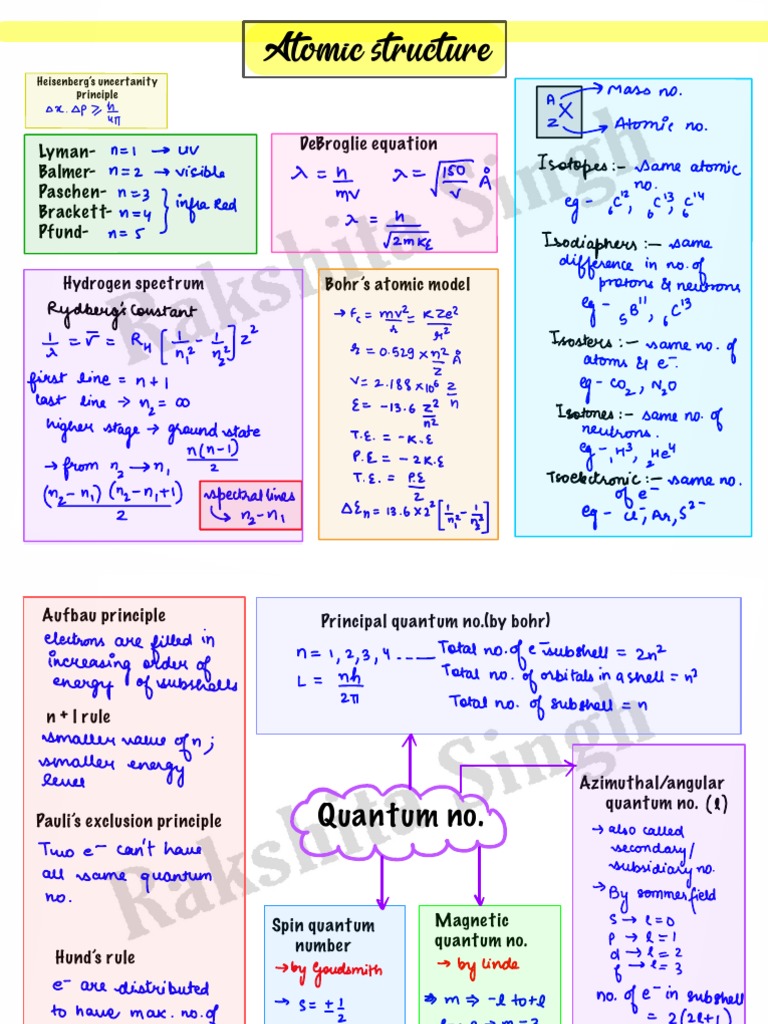 Atomic structure
Heisenberg's uncertanity
principle
Δx. Δp ≥ h/4π
Lyman- n=1 → UV
Balmer- n=2 → visible
Paschen- n=3
Brackett- n=4 } infra Red
Pfund- n=5
DeBroglie equation
λ = h/mv λ = √(150/v) Å
λ = h/√(2mKE)
A X → Mass no.
Z → Atomic no.
Isotopes:- same atomic
no.
eg - ₆C¹², ₆C¹³, ₆C¹⁴
Isodiaphers:- same
difference in no. of
protons & neutrons
eg - ₅B¹¹, ₆C¹³
Isosters:- same no. of
atoms & e⁻.
eg - CO₂, N₂O
Isotones:- same no. of
neutrons.
eg - ₁H³, ₂He⁴
Isoelectronic:- same no.
of e⁻
eg - Cl⁻, Ar, S²⁻
Hydrogen spectrum
Rydberg's Constant
1/λ = v̅ = R_H [1/n₁² - 1/n₂²] z²
first line = n+1
last line → n₂ = ∞
higher stage → ground state
n(n-1)/2
→ from n₂ → n₁
(n₂-n₁)(n₂-n₁+1)/2
spectral lines
↳ n₂-n₁
Bohr's atomic model
→ Fc = mv²/r = KZe²/r²
r = 0.529 × n²/z Å
V = 2.188 × 10⁶ z/n
E = -13.6 z²/n²
T.E. = -K.E
P.E = -2K.E
T.E. = P.E/2
ΔEn = 13.6 × z² [1/n₁² - 1/n₂²]
Aufbau principle
electrons are filled in
increasing order of
energy of subshells
n + l rule
smaller value of n;
smaller energy
level
Pauli's exclusion principle
Two e⁻ can't have
all same quantum
no.
Hund's rule
e⁻ are distributed
to have max. no. of
Principal quantum no.(by bohr)
n = 1, 2, 3, 4 ----- Total no. of e⁻ subshell = 2n²
L = nh/2π Total no. of orbitals in a shell = n²
Total no. of subshell = n
Quantum no.
Azimuthal/angular
quantum no. (l)
→ also called
secondary/
subsidiary no.
→ By sommerfield
S → l=0
p → l=1
d → l=2
f → l=3
no. of e⁻ in subshell
= 2(2l+1)
Spin quantum
number
→ by Goudsmith
→ S = ± 1/2
Magnetic
quantum no.
→ by linde
⇒ m → -l to +l
Rakshita Singh
Rakshita Singh